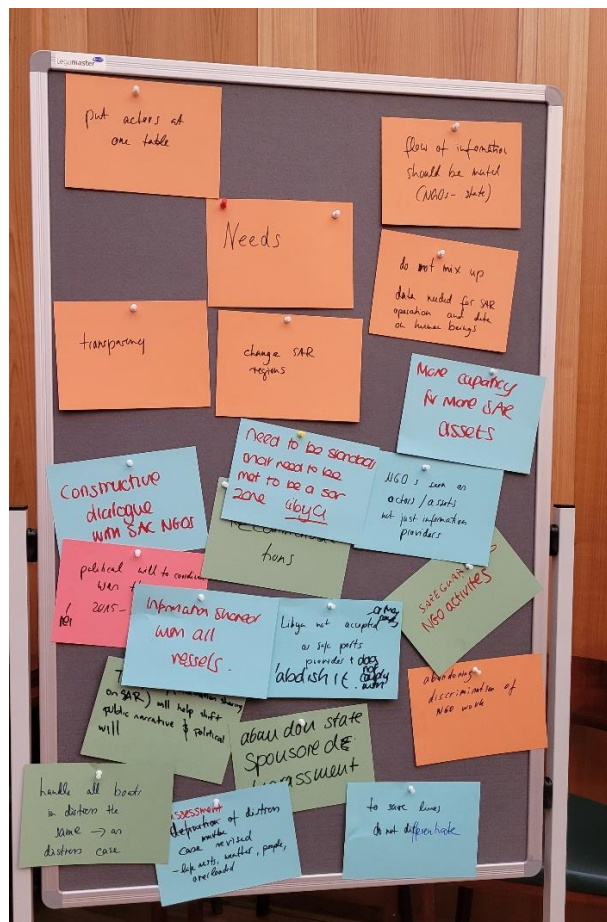 Legamaster
put actors at
one table
flow of information
should be mutel
(NGOs - state)
Needs
do not mix up
data needed for SAR
operation and data
on human beings
transparency
change SAR
regions
More capacity
for more SAR
assets
Need to be standards
that need to be
met to be a sar
zone Libya
NGO's seen as
actors / assets
not just information
providers
Constructive
dialogue
with SAR NGOs
tions
SAFEGUAR
NGO activites
political will to
2015-
Information shared
with all
vessels.
Libya not accepted
as safe ports
provider &
does
not
comply
with
'abolish it.
abandoning
discrimination of
NGO work
on SAR) will help shift
public narrative & political
will
abandon state
sponsored
handle all boats
in distress the
same → as
distress case
assessment
definition of distress
case
revised
- life vests, weather, people,
overloaded
to save lives
do not differentiate